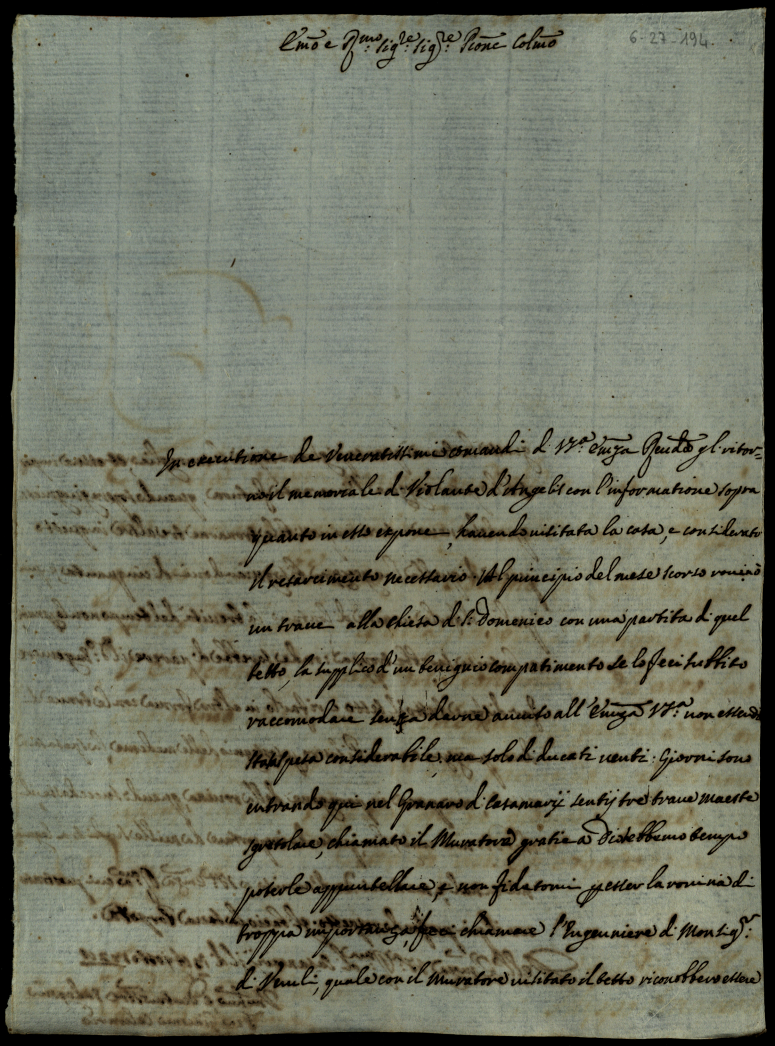 6-27-194.
Emo e Rmo Sigre Sigre Prone Colmo
In executione de Veneratissimi comandi d. Vra Emza Rendo gl' ritor=
no il memoriale d. Violante d'Angelis con l'informatione sopra
quanto in esso espone, havendo visitata la casa, e considerato
il resarcimento necessario. Al principio del mese scorso rovinò
un trave alla chiesa d. S. Domenico con una partita di quel
tetto, la supplico d'un benigno compatimento se lo feci subbito
raccomodare senza darne avviso all' Emza Vra non essendo
stata spesa considerabile, ma solo di ducati venti. Giorni sono
entrando qui nel Granaro d. Casamarij sentij tre trave maeste
sgretolare, chiamato il Muratore gratie a Dio hebbemo tempo
poterle appuntellare, e non fidatomi p esser la rovina di
troppa importanza, feci chiamare l'Ingeuniere d. Monsigr.
di Veruli, quale con il Muratore visitato il tetto riconobbero essere